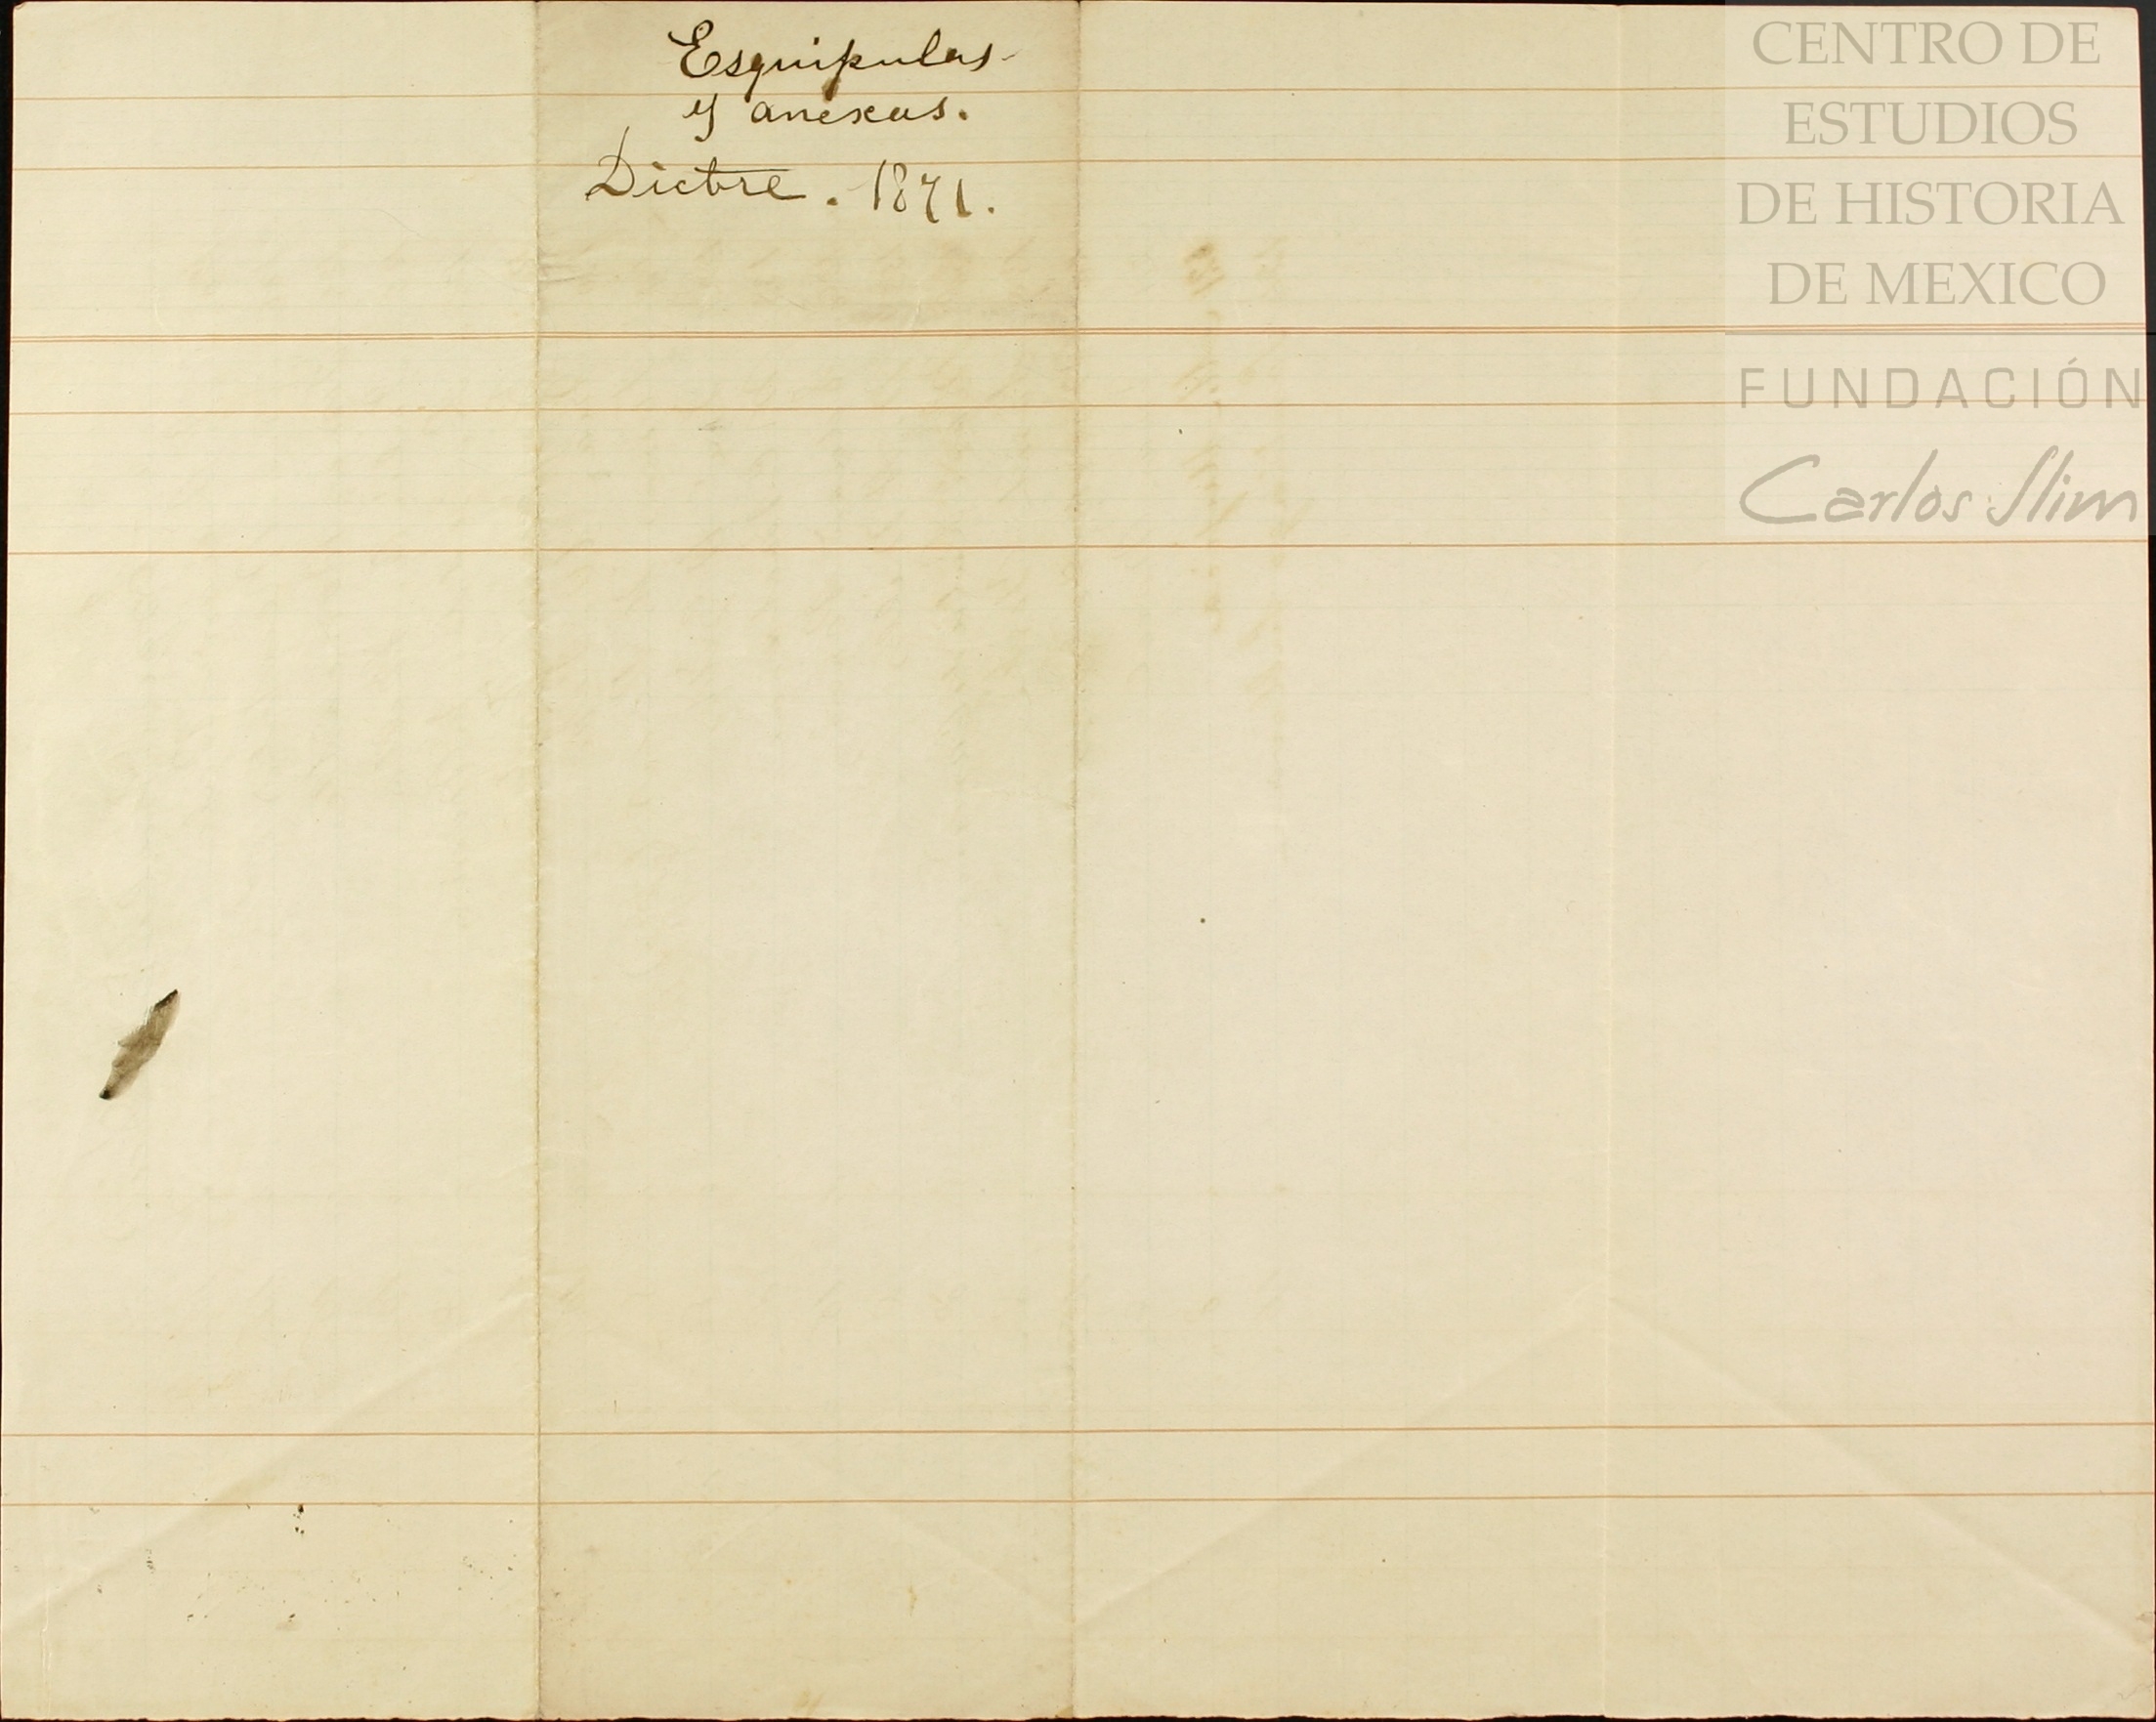 Esquipulas
y anexas.
Dictre. 1871.
CENTRO DE
ESTUDIOS
DE HISTORIA
DE MEXICO
FUNDACIÓN
Carlos Slim